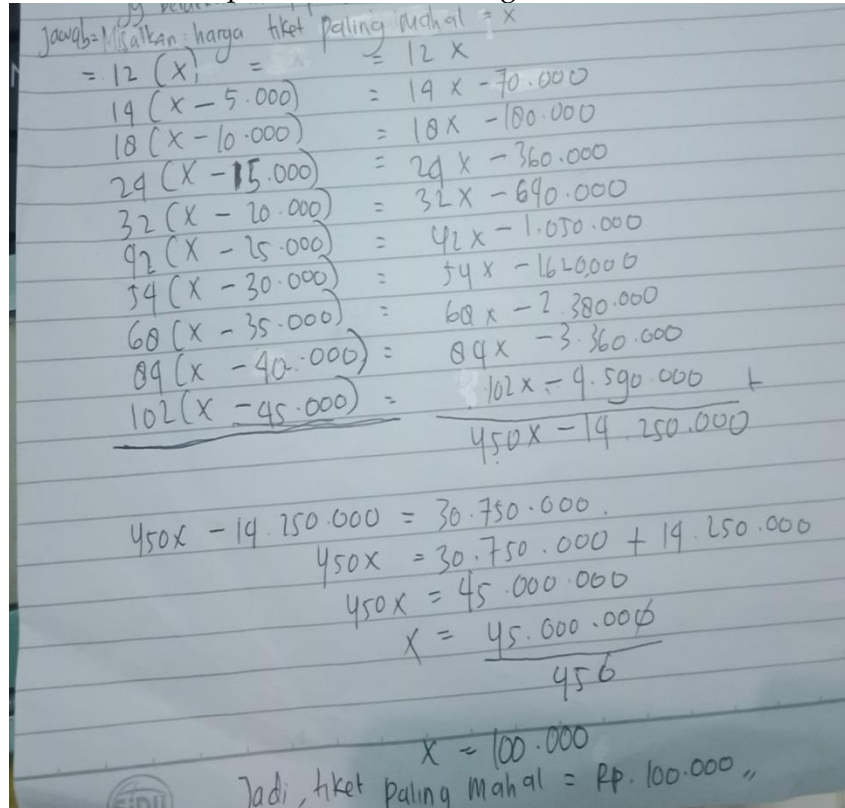 yg
Jawab = Misalkan : harga tiket paling mahal = x
= 12 (x) = = 12 x
14 (x - 5.000) = 14 x - 70.000
18 (x - 10.000) = 18x - 180.000
24 (x - 15.000) = 24 x - 360.000
32 (x - 20.000) = 32x - 640.000
42 (x - 25.000) = 42x - 1.050.000
54 (x - 30.000) = 54 x - 1620.000
68 (x - 35.000) = 68 x - 2.380.000
84 (x - 40.000) = 84x - 3.360.000
102 (x - 45.000) = 102 x - 4.590.000 +
450x - 14.250.000
450x - 14.250.000 = 30.750.000.
450x = 30.750.000 + 14.250.000
450x = 45.000.000
x = 45.000.000
450
x = 100.000
Jadi, tiket paling mahal = Rp. 100.000,,
SiDU